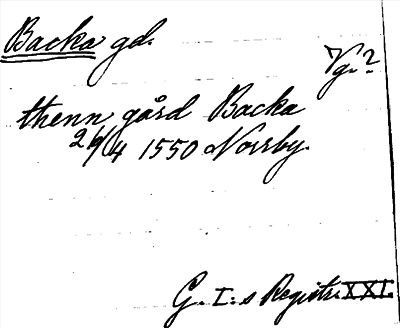 Backa gd.
Vg.?
thenn gård Backa
26/4 1550 Norrby.
G. I:s Registr. XXI.